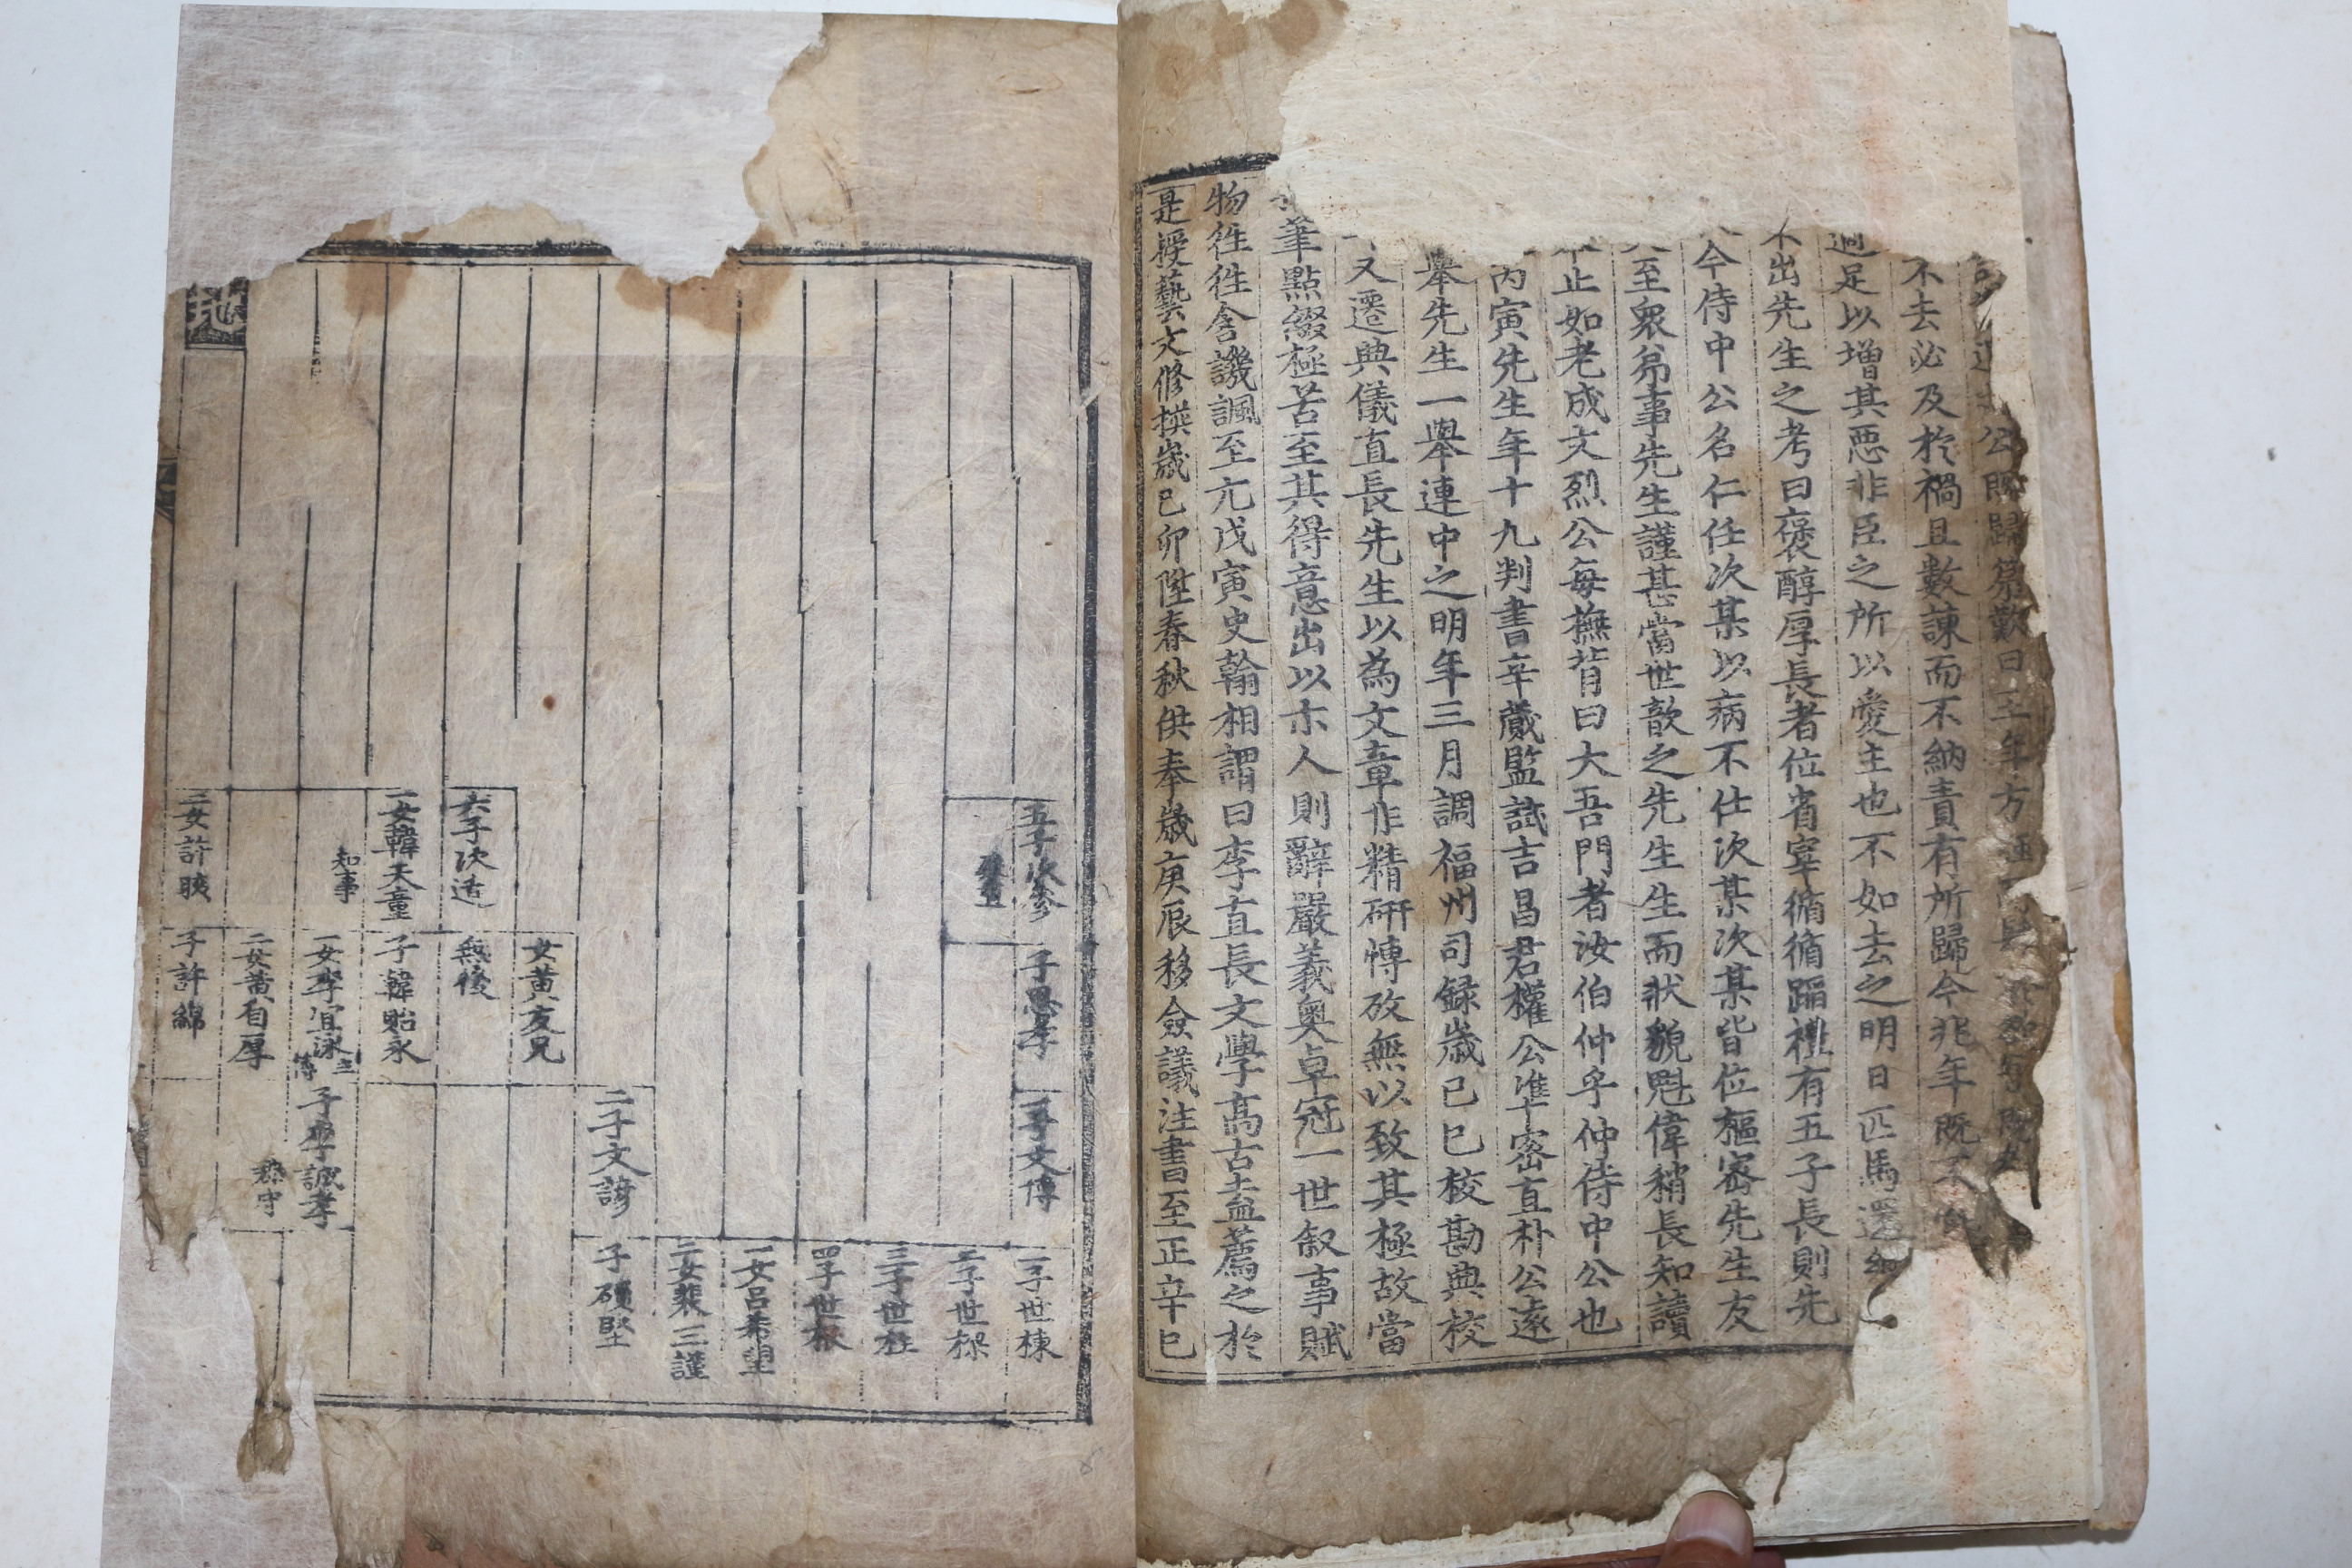 不去必及於禍且數諫而不納責有所歸今非年既不
足以增其惡非臣之所以愛主也不如去之明日匹馬還
出先生之考曰褒醇厚長者位省宰循循蹈禮有五子長則先
今侍中公名仁任次某以病不仕次某次某皆位樞密先生友
至衆弟事先生謹甚當世歆之先生生而狀貌魁偉稍長知讀
止如老成文烈公每撫背曰大吾門者汝伯仲乎仲侍中公也
丙寅先生年十九判書辛蕆監試吉昌君權公準密直朴公遠
舉先生一舉連中之明年三月調福州司錄歲己巳校勘典校
又遷典儀直長先生以為文章非精硏慱攷無以致其極故當
筆點綴極苦至其得意出以示人則辭嚴義奧卓冠一世叙事賦
物徃徃含譏諷至元戊寅史翰相謂曰李直長文學高古盍薦之於
是授藝文修撰歲己卯陞春秋供奉歲庚辰移僉議注書至正辛巳
五子次參
子思孝
一子文傳
一子世棟
二子世樑
三子世柱
四子世根
一女呂希望
二女裴三謹
二子文諺
子碩堅
女黃友兄
六子次适
無後
二女韓天童
知事
子韓貽永
一女李宜泳
子李誠孝
郡守
二女黃自厚
三女許晐
子許綿
地